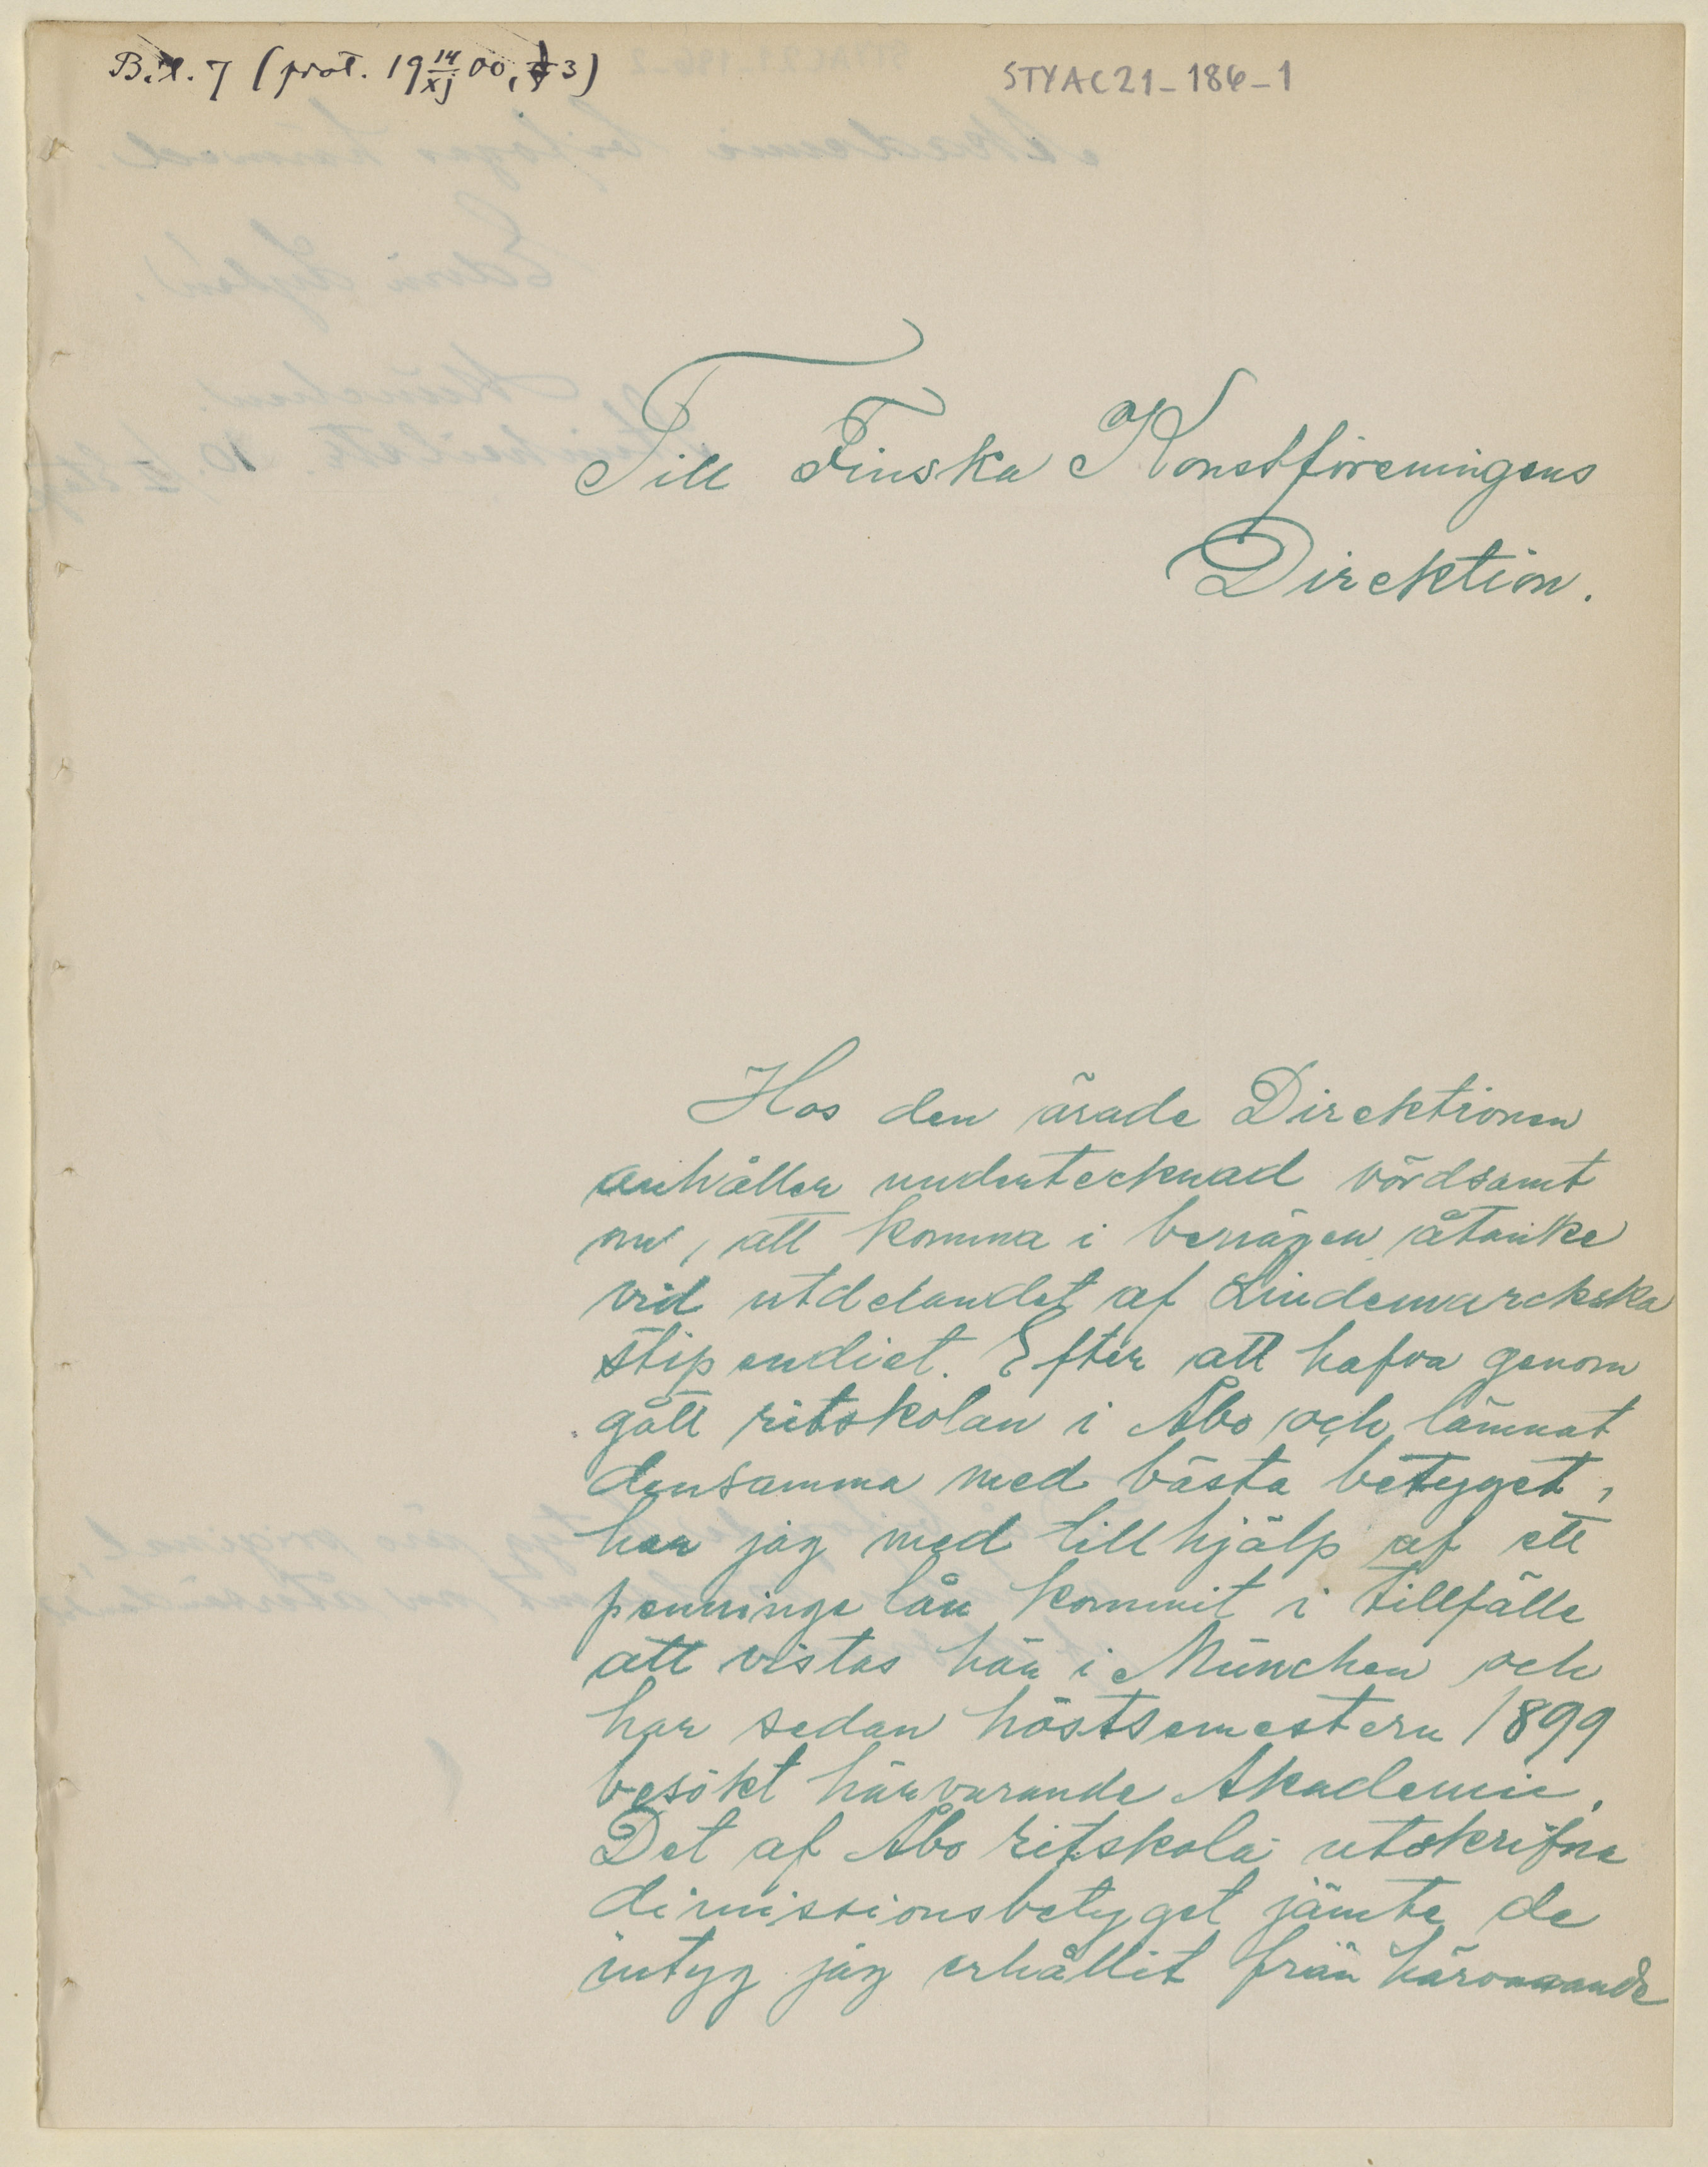 Bil. 7 (prot. 19 14/XI 00, § 3)
STYAC21-186-1
Till Finska Konstföreningens
Direktion.
Hos den ärade Direktionen
anhåller undertecknad vördsamt
om, att komma i benägen åtanke
vid utdelandet af Lindemarckska
stipendiet. Efter att hafva genom
gått ritskolan i Åbo och lämnat
densamma med bästa betyget,
har jag med tillhjälp af ett
penninge lån kommit i tillfälle
att vistas här i München och
har sedan höstsemestern 1899
besökt härvarande Akademie.
Det af Åbo ritskola utskrifna
dimissionsbetyget jämte de
intyg jag erhållit från härvarande